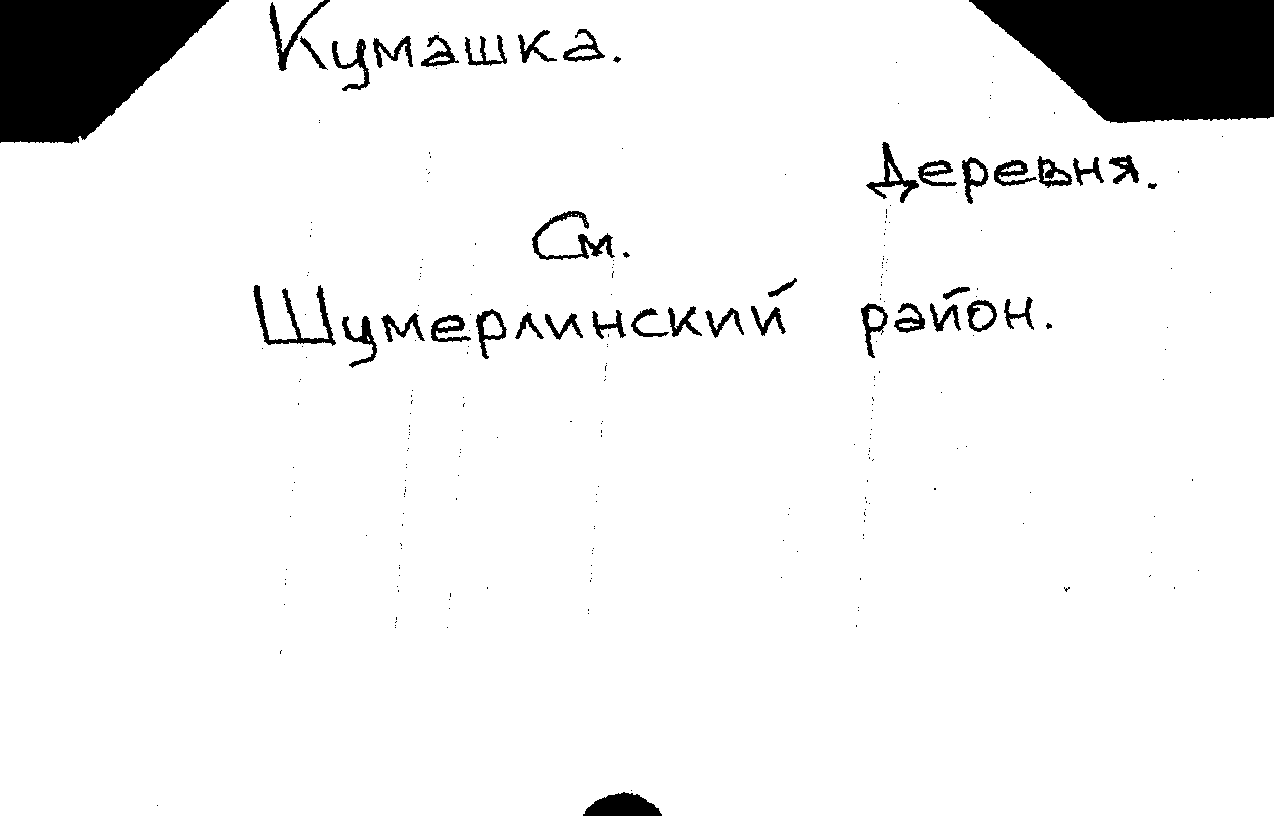 Кумашка.
Деревня.
См.
Шумерлинский район.